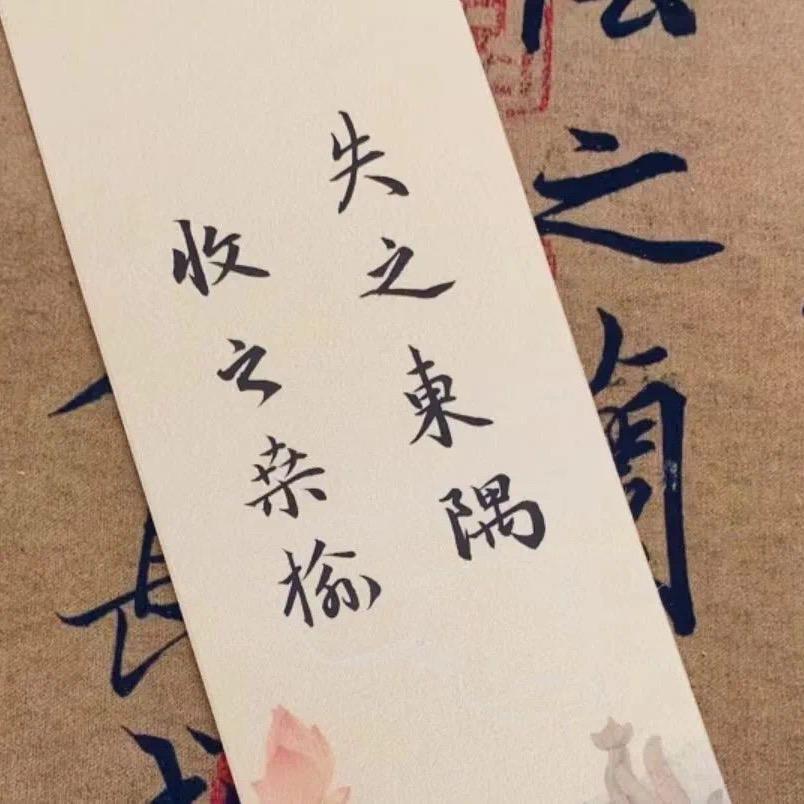 失之東隅
收之桑榆
之蘭